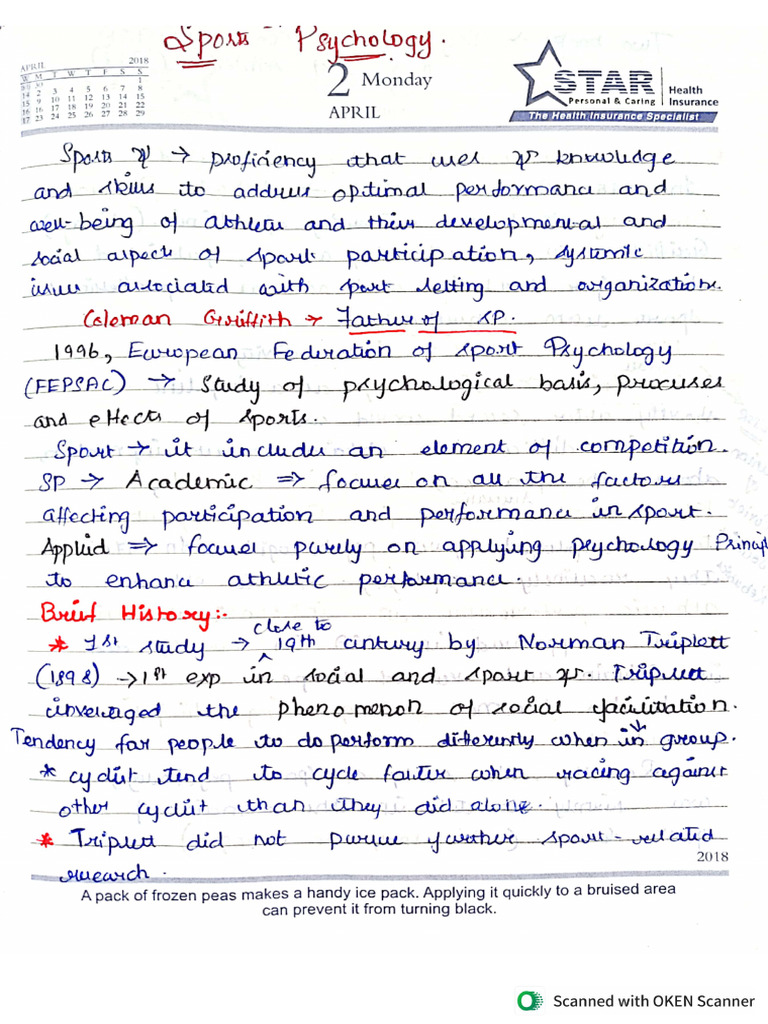 Sports Psychology.
APRIL 2018
W M T W T F S S
13 30 1
14 2 3 4 5 6 7 8
15 9 10 11 12 13 14 15
16 16 17 18 19 20 21 22
17 23 24 25 26 27 28 29
2 Monday
APRIL
STAR Health Insurance
Personal & Caring
The Health Insurance Specialist
Sports ψ → proficiency that uses ψ knowledge
and skills to address optimal performance and
well-being of athletes and their developmental and
social aspects of sport participation, systemic
issues associated with sport setting and organizations.
Coleman Griffith → Father of SP.
1996, European Federation of sport Psychology
(FEPSAC) → Study of psychological basis, processes
and effects of sports.
Sport → it includes an element of competition.
SP → Academic ⇒ focuses on all the factors
affecting participation and performance in sport.
Applied ⇒ focuses purely on applying psychology Principl
to enhance athletic performance.
Brief History:-
close to
* 1st study → 19th century by Norman Triplett
(1898) → 1st exp in social and sport ψ. Triplett
the phenomenon of social facilitation.
Tendency for people to do perform differently when in group.
* cyclist tend to cycle faster when racing against
other cyclist than they did alone.
* Triplett did not pursue further sport-related
research.
2018
A pack of frozen peas makes a handy ice pack. Applying it quickly to a bruised area
can prevent it from turning black.
Scanned with OKEN Scanner